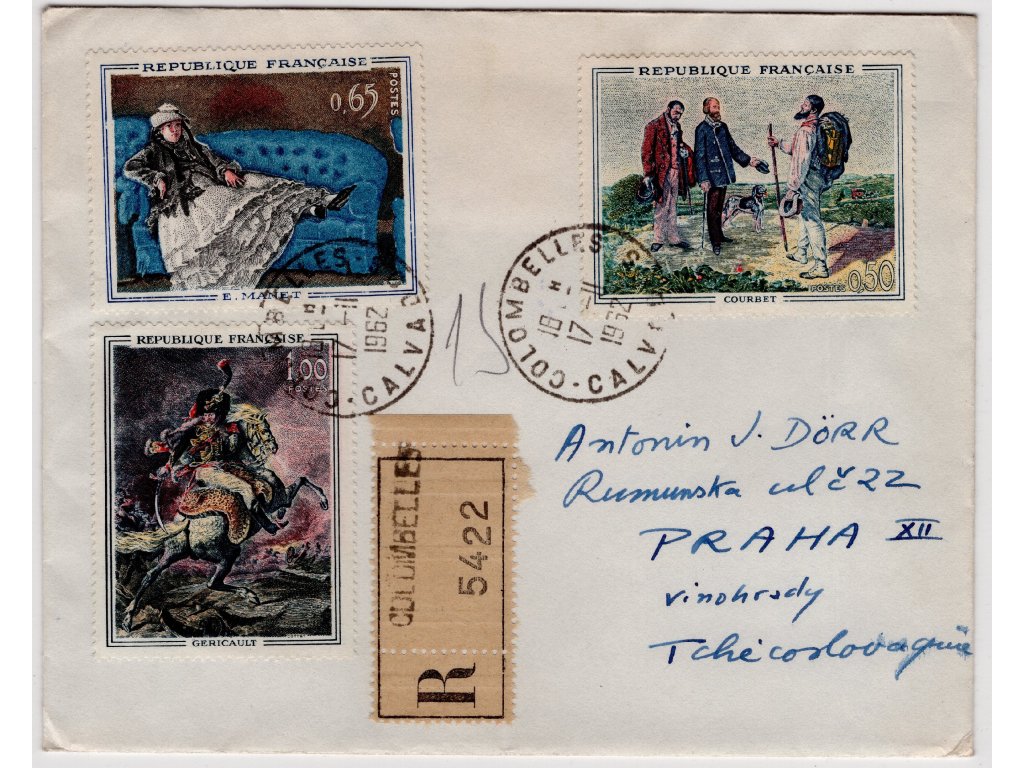 REPUBLIQUE FRANÇAISE
0,65
POSTES
E. MANET
REPUBLIQUE FRANÇAISE
POSTES 0,50
COURBET
REPUBLIQUE FRANÇAISE
1,00
POSTES
GERICAULT
COLOMBELLES
18 H
17-11
1962
CALVADOS
COLOMBELLES
18 H
17-11
1962
CALVADOS
15
R
COLOMBELLES
5422
Antonin J. DÖRR
Rumunska ul č 22
PRAHA XII
Vinohrady
Tchécoslovaquie